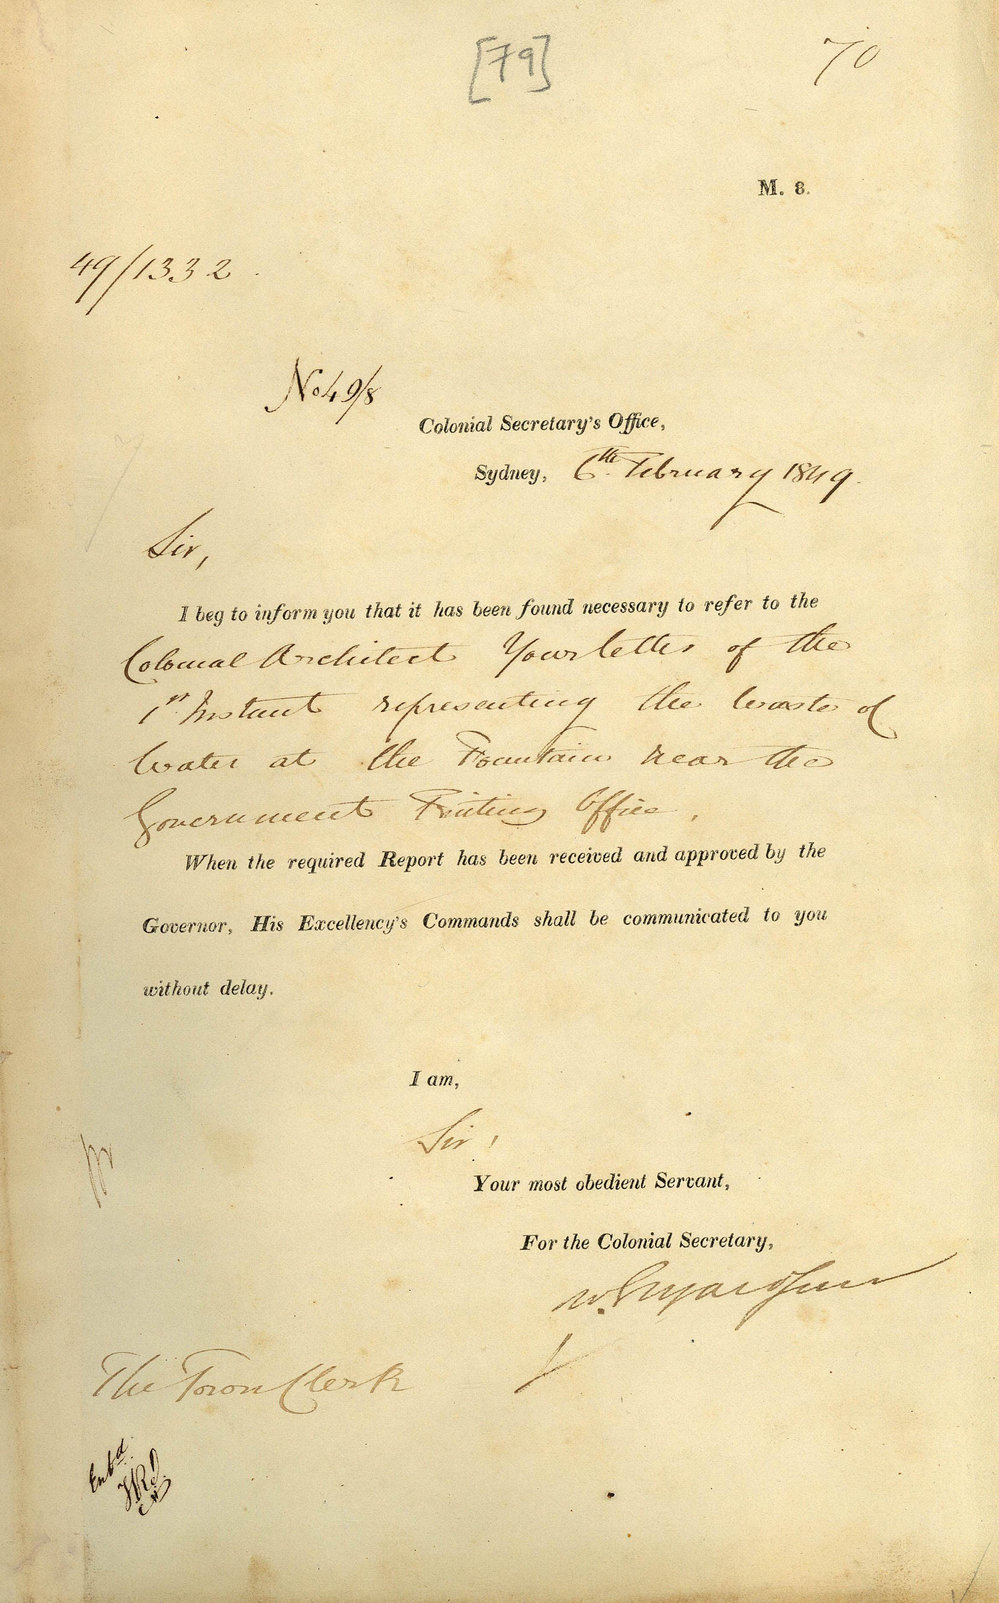 [79]
70
M. 8.
49/1332.
No 49/8
Colonial Secretary's Office,
Sydney, 6th February 1849.
Sir,
I beg to inform you that it has been found necessary to refer to the
Colonial Architect Your letter of the
1st Instant representing the waste of
Water at the Fountain near the
Government Printing Office.
When the required Report has been received and approved by the
Governor, His Excellency's Commands shall be communicated to you
without delay.
I am,
Sir,
Your most obedient Servant,
For the Colonial Secretary,
W.
The Town Clerk
Entd